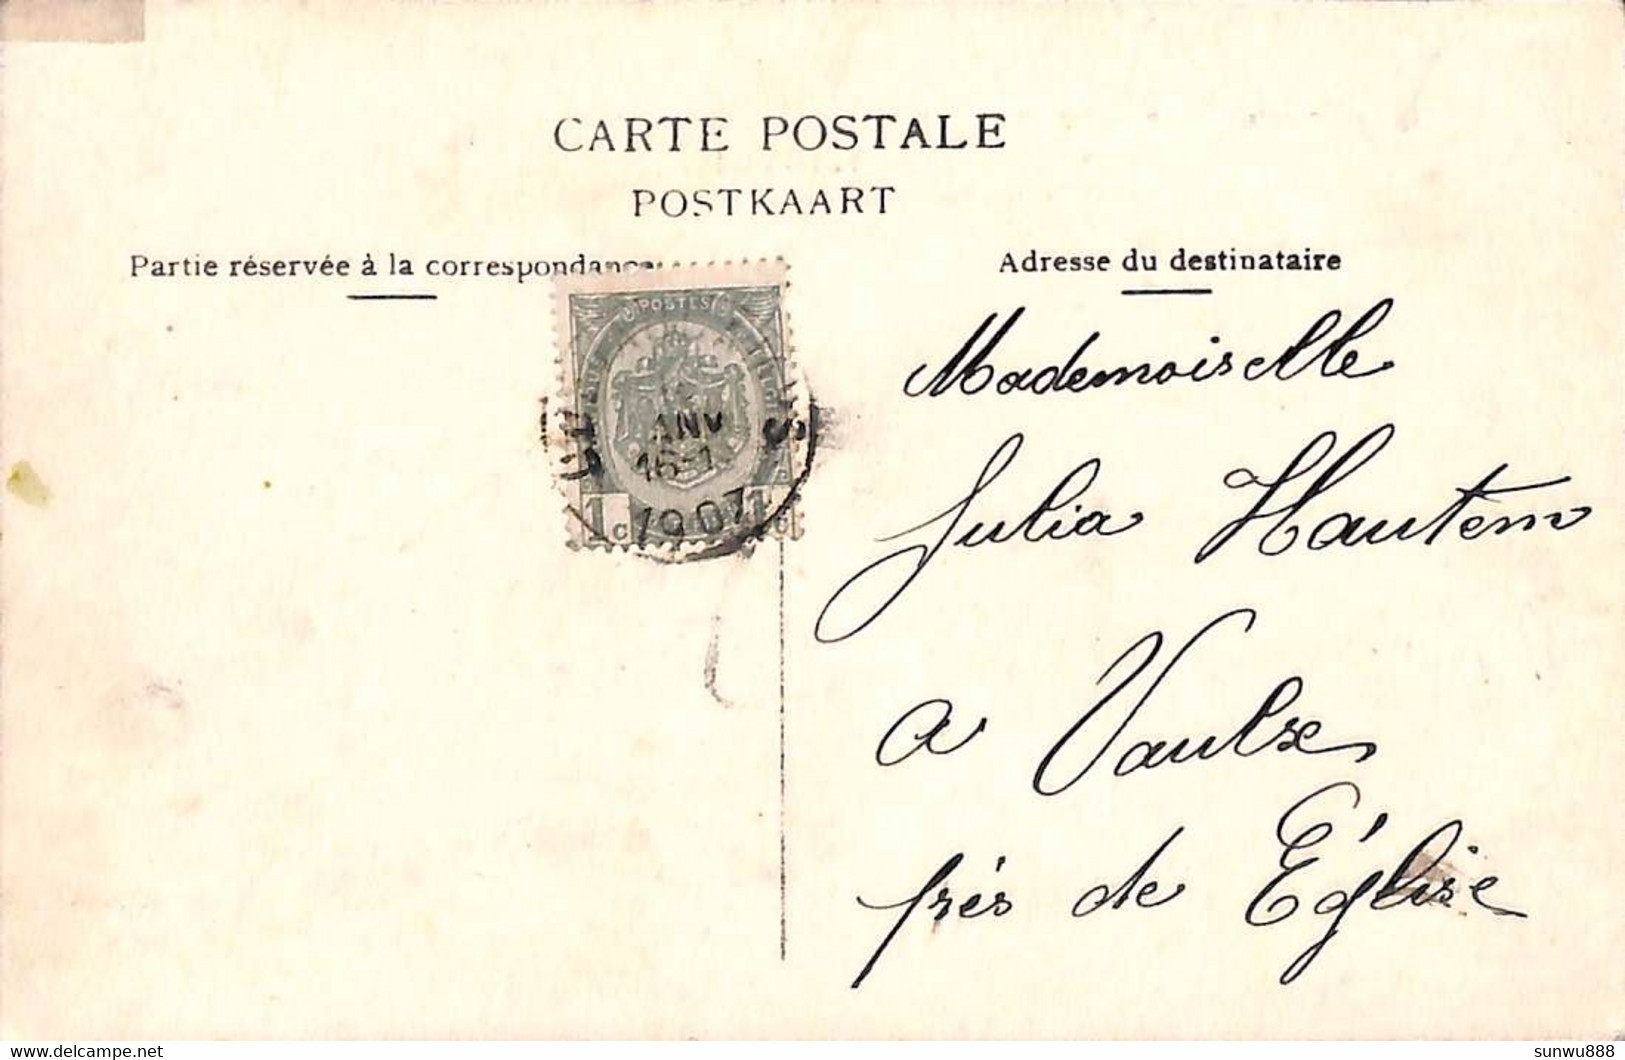 CARTE POSTALE
POSTKAART
Partie réservée à la correspondance
Adresse du destinataire
POSTES
ANV
16-1
1907
1c 1c
Mademoiselle
Julia Hautem
a Vaulx
près de Église
delcampe.net
sunwu888